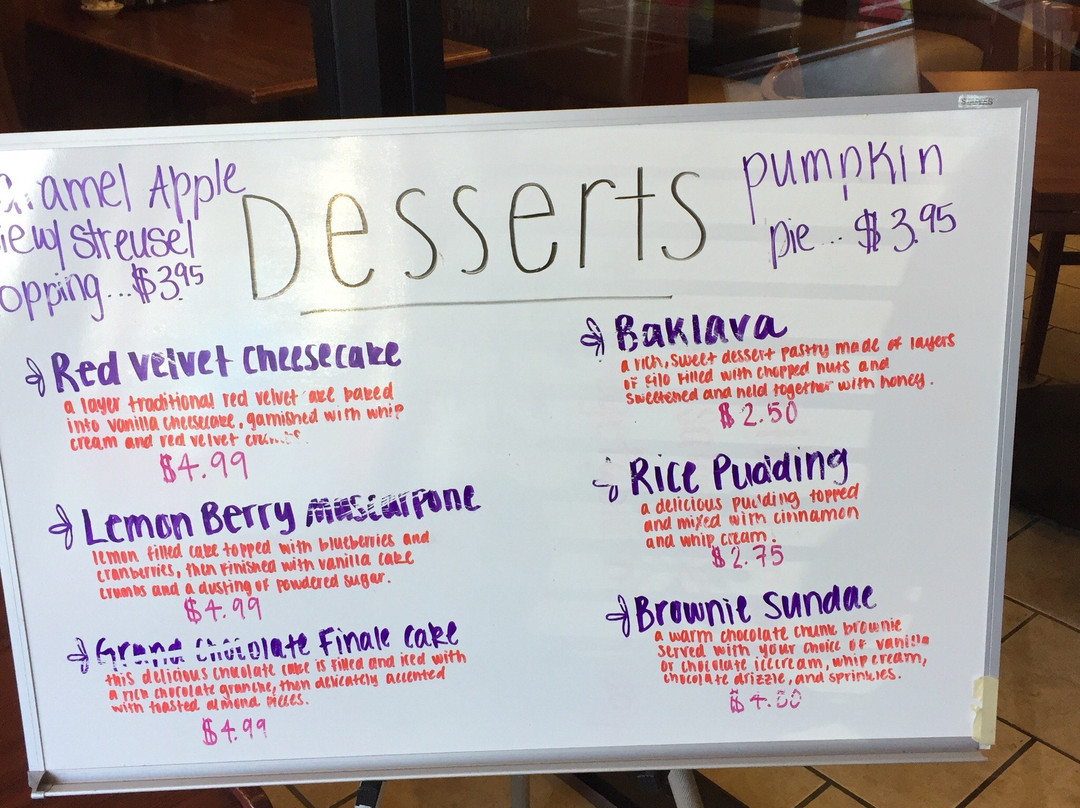 Caramel Apple
iew/ streusel
opping...$3.95
Desserts
pumpkin
pie... $3.95
Red Velvet Cheesecake
a layer traditional red velvet ake baked
into vanilla cheesecake, garnished with whip
cream and red velvet
$4.99
Lemon Berry mascarpone
lemon filled cake topped with blueberries and
cranberries, then finished with vanilla cake
crumbs and a dusting of powdered sugar.
$4.99
Grand Chocolate Finale Cake
this delicious chocolate cake is filled and iced with
a rich chocolate granche, then delicately accented
with toasted almond pieces.
$4.99
Baklava
a rich, sweet dessert pastry made of layers
of filo filled with chopped nuts and
sweetened and held together with honey.
$2.50
Rice Pudding
a delicious pudding topped
and mixed with cinnamon
and whip cream.
$2.75
Brownie Sundae
a warm chocolate chunk brownie
served with your choice of vanilla
or chocolate icecream, whip cream,
chocolate drizzle, and sprinkles.